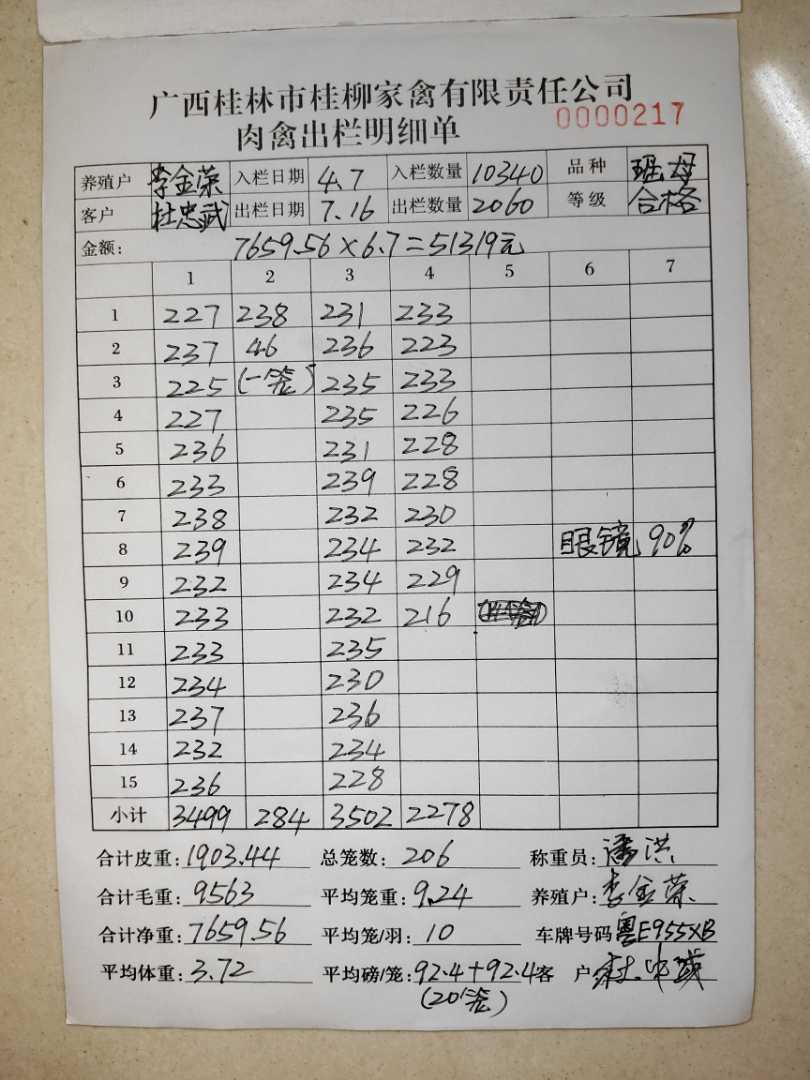 广西桂林市桂柳家禽有限责任公司
肉禽出栏明细单 0000217
养殖户 李金荣 入栏日期 4.7 入栏数量 10340 品种 瑶母
客户 杜忠武 出栏日期 7.16 出栏数量 2060 等级 合格
金额: 7659.56×6.7=51319元
1 2 3 4 5 6 7
1 227 238 231 233
2 237 46 236 223
3 225 (一笼) 235 233
4 227 235 226
5 236 231 228
6 233 239 228
7 238 232 230
8 239 234 232 眼镜 90%
9 232 234 229
10 233 232 216
11 233 235
12 234 230
13 237 236
14 232 234
15 236 228
小计 3499 284 3502 2278
合计皮重: 1903.44 总笼数: 206 称重员: 潘洪
合计毛重: 9563 平均笼重: 9.24 养殖户: 李金荣
合计净重: 7659.56 平均笼/羽: 10 车牌号码 粤E955XB
平均体重: 3.72 平均磅/笼: 92.4+92.4 客户 杜忠武
(20笼)